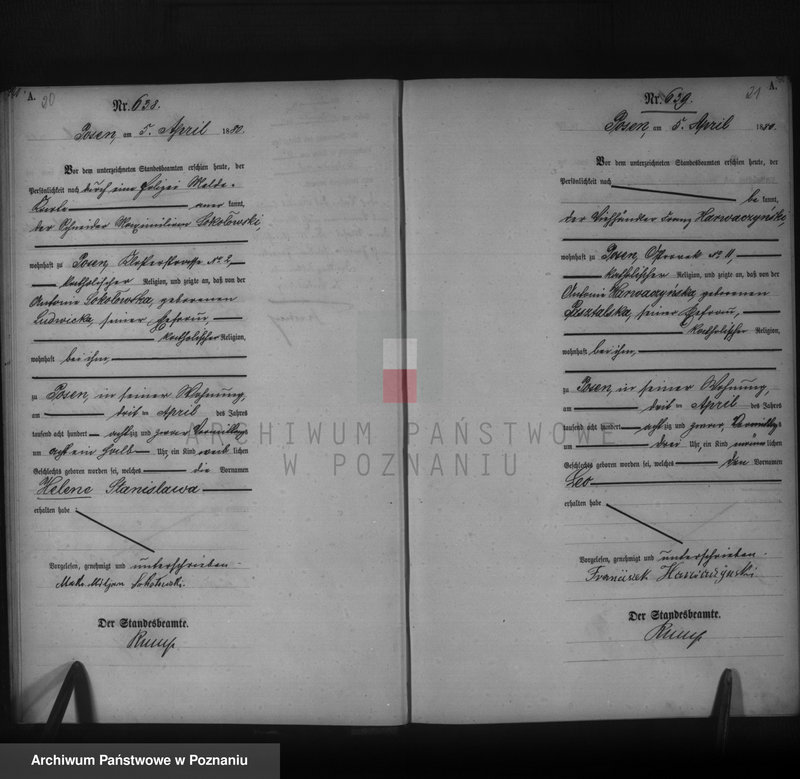 A.
20
Nr. 638.
Posen, am 5. April 1880.
Vor dem unterzeichneten Standesbeamten erschien heute, der
Persönlichkeit nach durch eine Polizei Melde-
Karte anerkannt,
der Schneider Maximilian Sokolowski,
wohnhaft zu Posen, Klosterstrasse No 2,
katholischer Religion, und zeigte an, daß von der
Antonie Sokolowska, geborenen
Ludwicka, seiner Ehefrau,
katholischer Religion,
wohnhaft bei ihm,
zu Posen, in seiner Wohnung,
am dritten April des Jahres
tausend acht hundert achtzig und zwar Vormittags
um acht ein halb Uhr ein Kind weiblichen
Geschlechts geboren worden sei, welches die Vornamen
Helene Stanislawa
erhalten habe
Vorgelesen, genehmigt und unterschrieben
Sokolowski.
Der Standesbeamte.
Rump
A.
21
Nr. 639.
Posen, am 5. April 1880.
Vor dem unterzeichneten Standesbeamten erschien heute, der
Persönlichkeit nach
bekannt,
der Franz Harwaczynski,
wohnhaft zu Posen, Ostrowek No 11,
katholischer Religion, und zeigte an, daß von der
Antonie Harwaczyńska, geborenen
seiner Ehefrau,
katholischer Religion,
wohnhaft bei ihm,
zu Posen, in seiner Wohnung,
am dritten April des Jahres
tausend acht hundert achtzig und zwar Vormittags
um drei Uhr, ein Kind männlichen
Geschlechts geboren worden sei, welches den Vornamen
Leo
erhalten habe
Vorgelesen, genehmigt und unterschrieben.
Franciszek
Der Standesbeamte.
Rump
ARCHIWUM PAŃSTWOWE
W POZNANIU
Archiwum Państwowe w Poznaniu